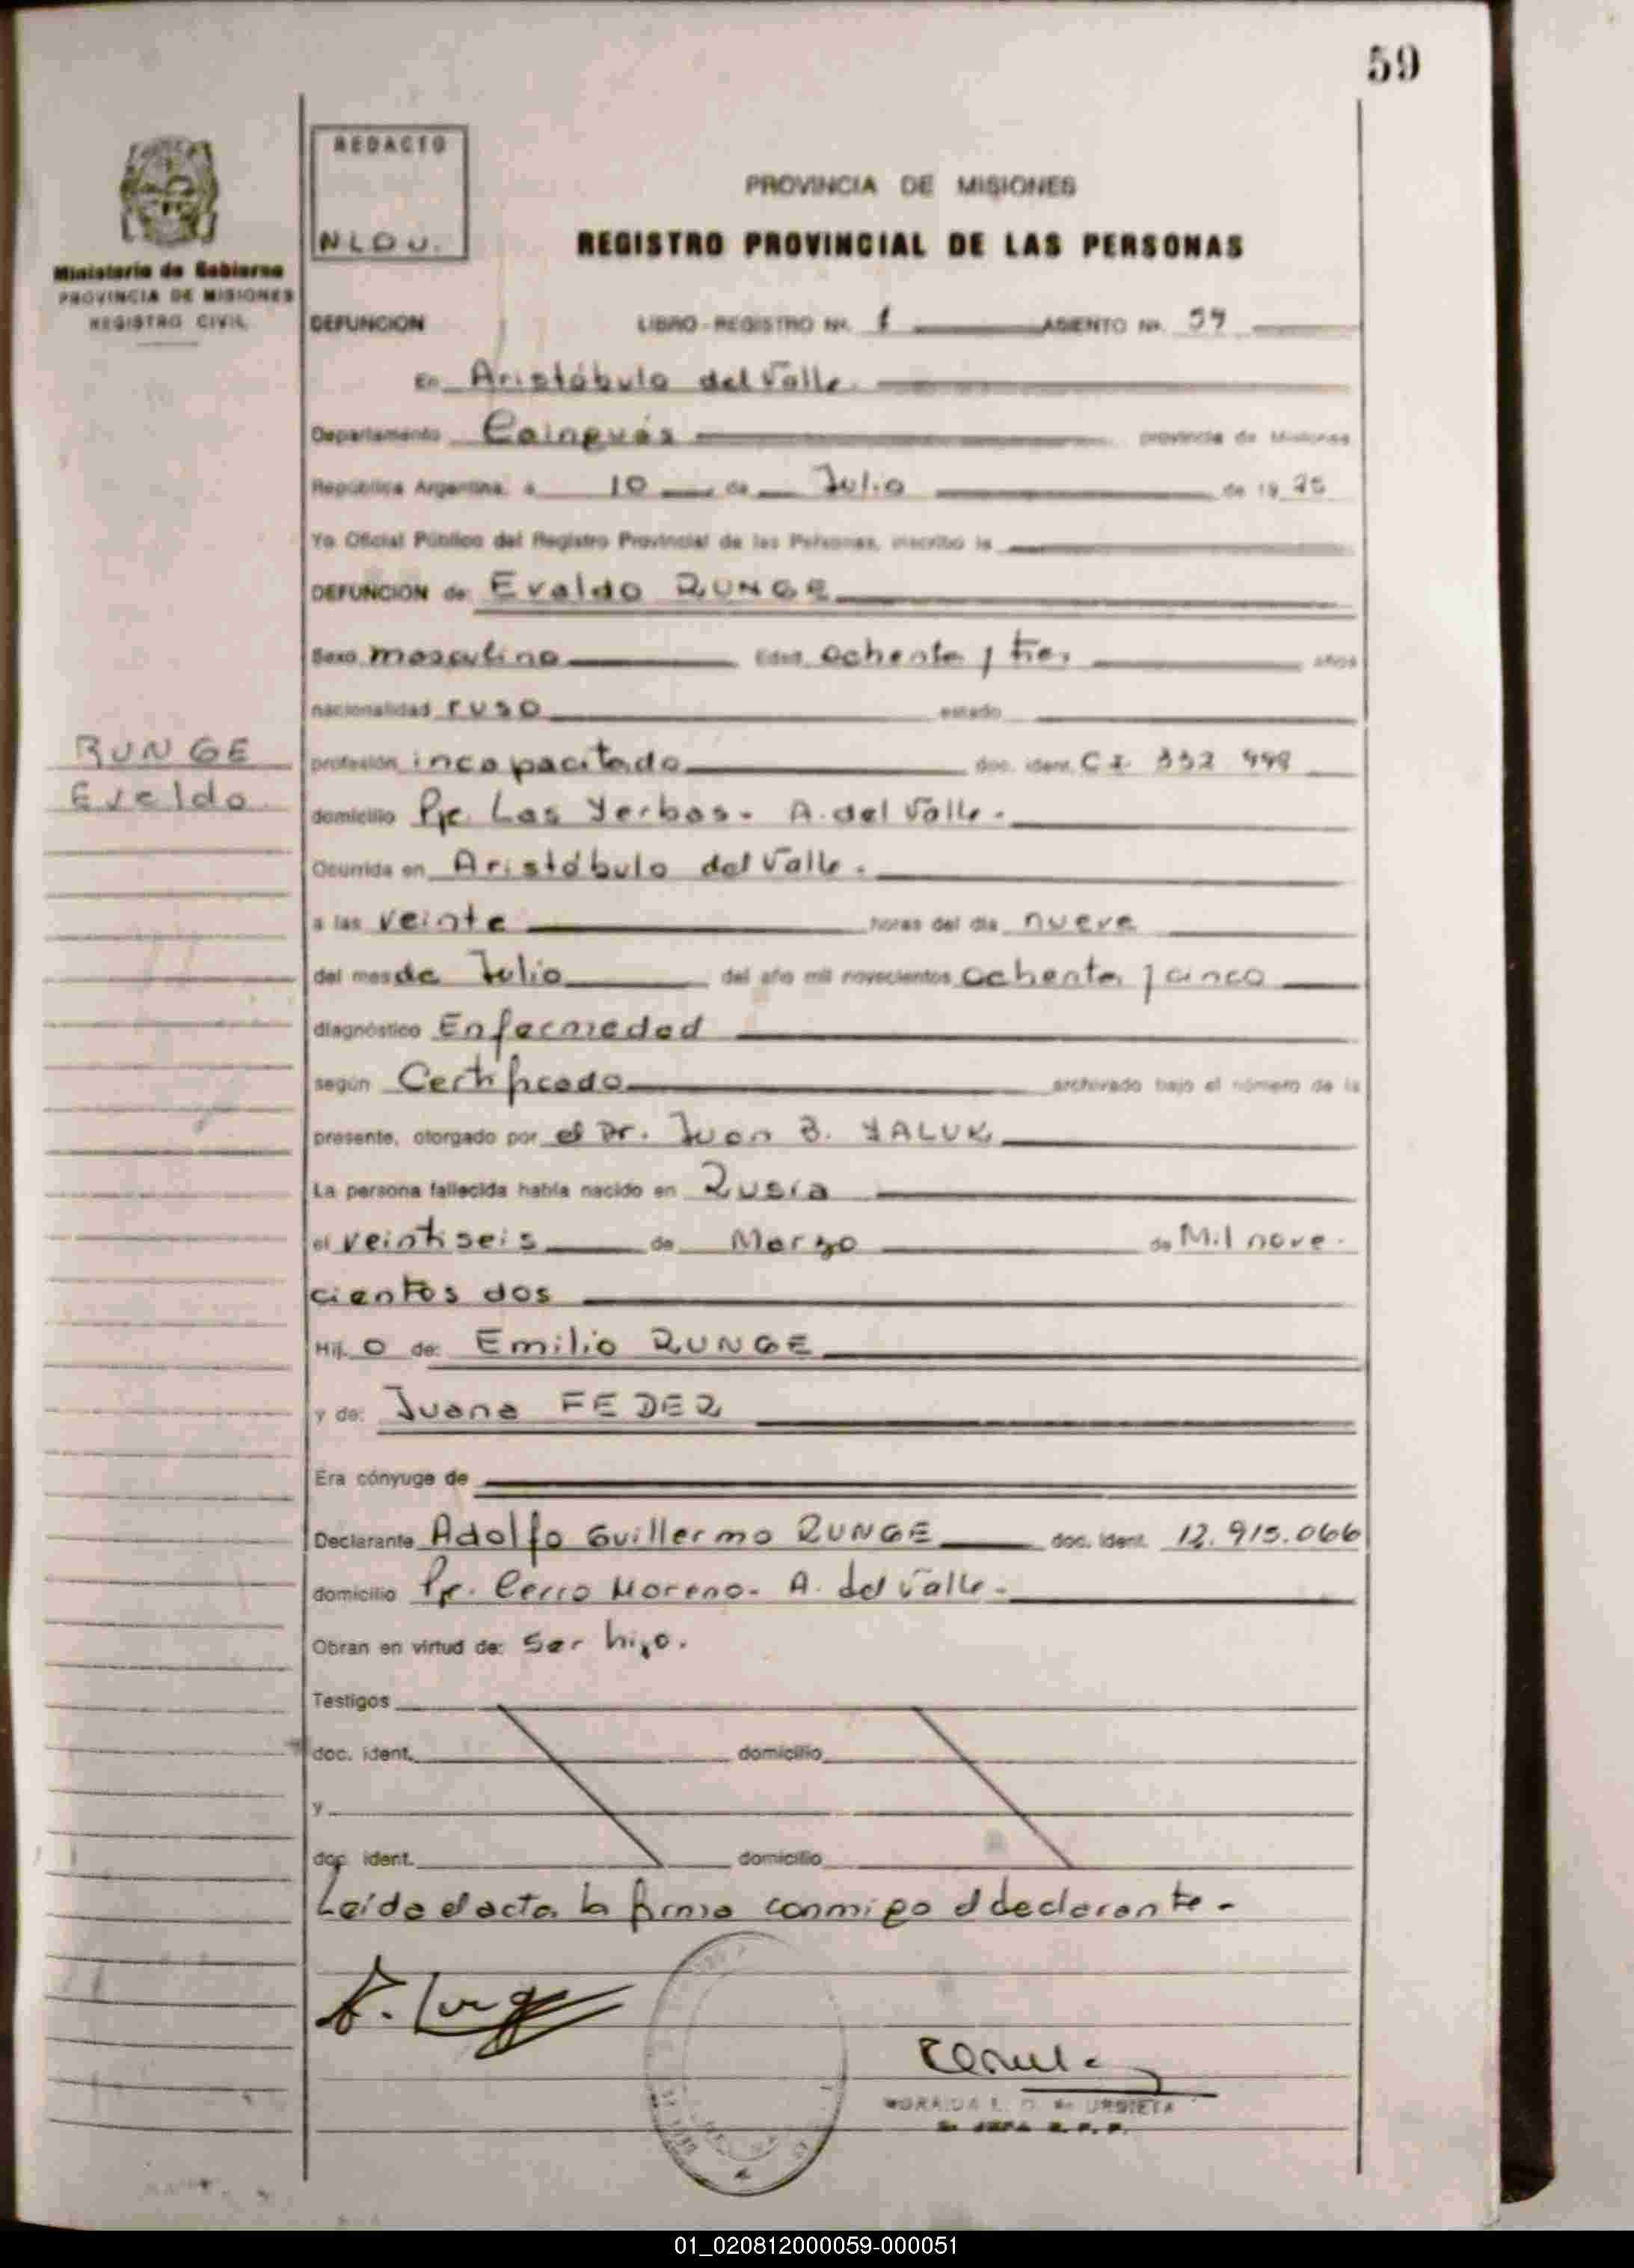 59
REDACTO
N L D U.
PROVINCIA DE MISIONES
REGISTRO PROVINCIAL DE LAS PERSONAS
Ministerio de Gobierno
PROVINCIA DE MISIONES
REGISTRO CIVIL
DEFUNCION LIBRO-REGISTRO Nº. 1 ASIENTO Nº. 59
En Aristóbulo del Valle.
Departamento Cainguás provincia de Misiones
República Argentina, a 10 de Julio de 19 85
Yo Oficial Público del Registro Provincial de las Personas, inscribo la
DEFUNCION de: Evaldo RUNGE
Sexo masculino Edad ochenta y tres años
nacionalidad ruso estado
RUNGE
Evaldo
profesión incapacitado doc. ident. C I. 332 998
domicilio Pje. Las Yerbas - A. del Valle.
Ocurrida en Aristóbulo del Valle.
a las veinte horas del día nueve
del mes de Julio del año mil novecientos ochenta y cinco
diagnóstico Enfermedad
según Certificado archivado bajo el número de la
presente, otorgado por el Dr. Juan B. YALUK
La persona fallecida había nacido en Rusia
el veintiseis de Marzo de Mil nove-
cientos dos
Hij o de: Emilio RUNGE
y de: Juana FEDER
Era cónyuge de
Declarante Adolfo Guillermo RUNGE doc. ident. 12.915.066
domicilio Pje. Cerro Moreno - A. del Valle -
Obran en virtud de: ser hijo.
Testigos
doc. ident. domicilio
y
doc. ident. domicilio
Leída el acta la firma conmigo el declarante -
A. Runge
L. D. de URBIETA
R. P. P.
01_020812000059-000051